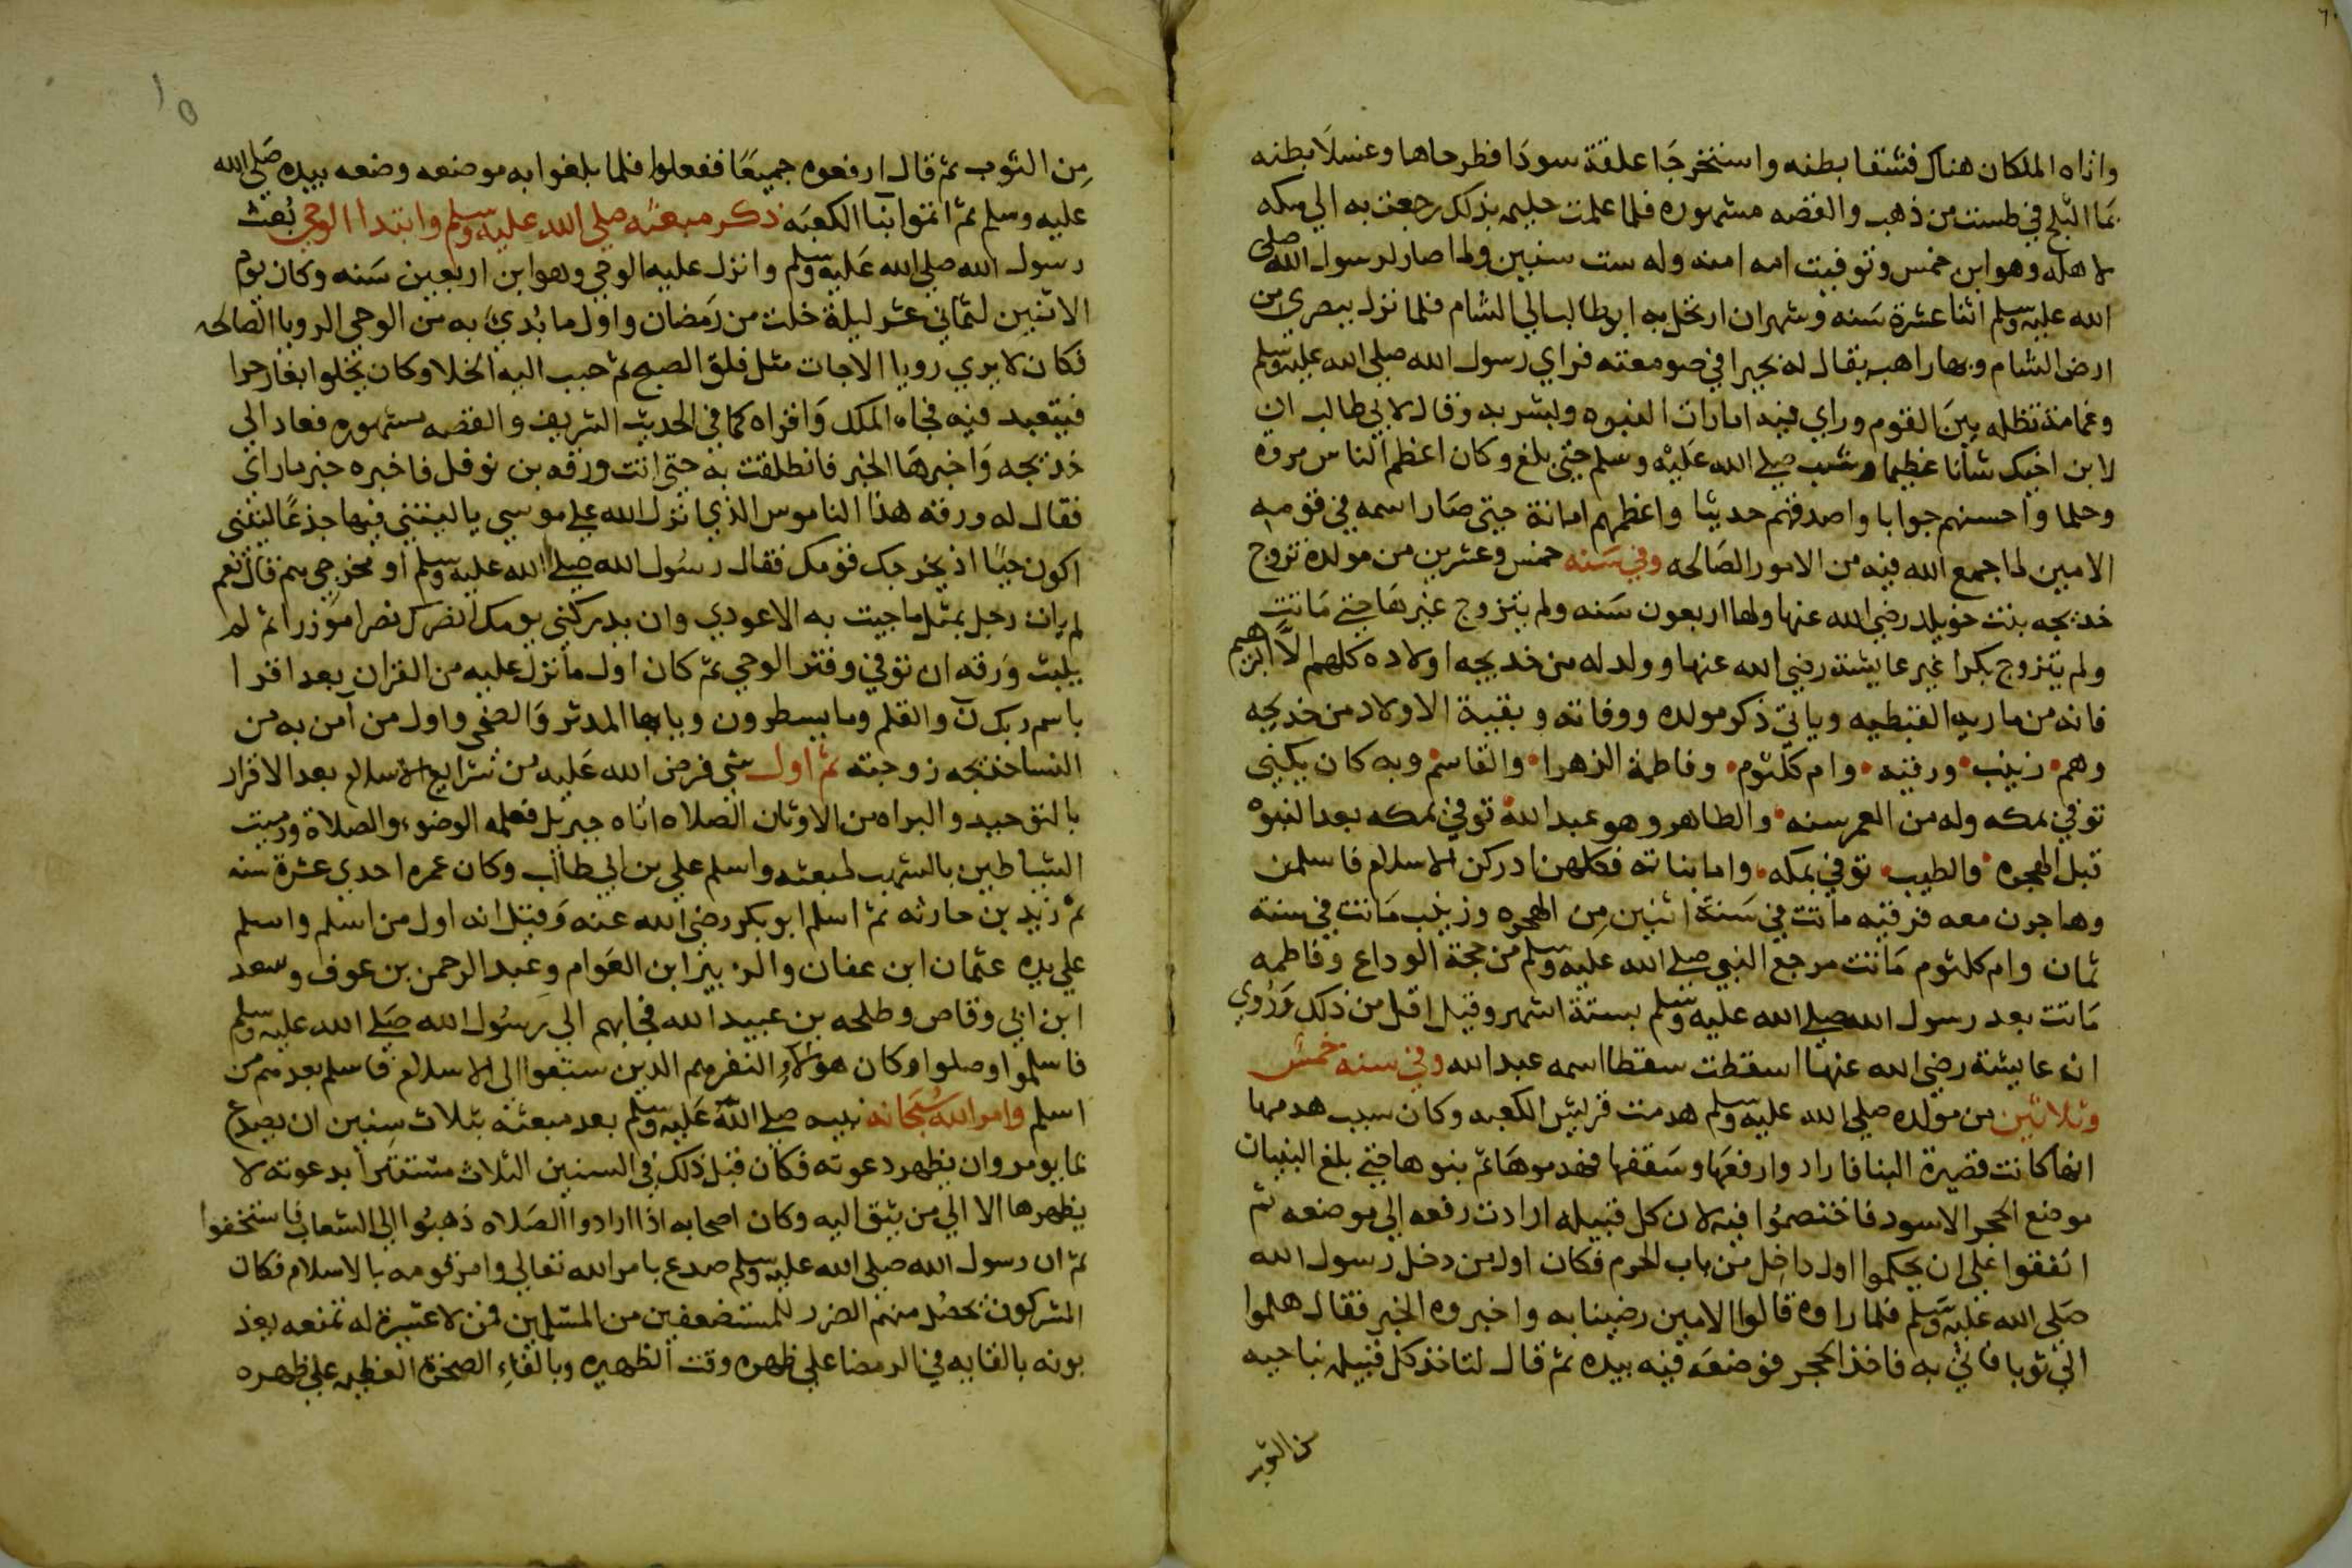 واتاه الملكان هناك فشقا بطنه واستخرجا علقة سودا فطرحاها وغسلا بطنه
بما الثلج في طست من ذهب والقصه مشهوره فلما علمت حليمه بذلك رجعت به الي مكه
لاهله وهو ابن خمس وتوفيت امه امنه وله ست سنين ولما صار لرسول الله صلي
الله عليه وسلم اثنا عشرة سنه وشهران ارتحل به ابوطالب الي الشام فلما نزل ببصري من
ارض الشام وبها راهب يقال له بحيرا في صومعته فراي رسول الله صلي الله عليه وسلم
وغمامة تظله بين القوم وراي فيه امارات النبوه وبشر به وقال لابي طالب ان
لابن اخيك شانا عظيما وشب صلي الله عليه وسلم حتي بلغ وكان اعظم الناس مروه
وحلما واحسنهم جوابا واصدقهم حديثا واعظمهم امانة حتي صار اسمه في قومه
الامين لما جمع الله فيه من الامور الصالحه وفي سنه خمس وعشرين من مولده تزوج
خديجه بنت خويلد رضي الله عنها ولها اربعون سنه ولم يتزوج غيرها حتي ماتت
ولم يتزوج بكرا غير عايشة رضي الله عنها وولد له من خديجه اولاده كلهم الا ابرهيم
فانه من ماريه القبطيه وياتي ذكر مولده ووفاته وبقية الاولاد من خديجه
وهم زينب ورقيه وام كلثوم وفاطمة الزهرا والقاسم وبه كان يكني
توفي بمكه وله من العمر سنه والطاهر وهو عبد الله توفي بمكه بعد النبوه
قبل الهجره والطيب توفي بمكه واما بناته فكلهن ادركن الاسلام فاسلمن
وهاجرن معه فرقيه ماتت في سنة اثنين من الهجره وزينب ماتت في سنة
ثمان وام كلثوم ماتت مرجع النبي صلي الله عليه وسلم من حجة الوداع وفاطمه
ماتت بعد رسول الله صلي الله عليه وسلم بستة اشهر وقيل اقل من ذلك وروي
ان عايشة رضي الله عنها اسقطت سقطا اسمه عبد الله وفي سنه خمس
وثلاثين من مولده صلي الله عليه وسلم هدمت قريش الكعبه وكان سبب هدمها
انها كانت قصيرة البنا فارادوا رفعها وسقفها فهدموها ثم بنوها حتي بلغ البنيان
موضع الحجر الاسود فاختصموا فيه لان كل قبيله ارادت رفعه الي موضعه ثم
اتفقوا علي ان يحكموا اول داخل من باب الحرم فكان اول من دخل رسول الله
صلي الله عليه وسلم فلما راوه قالوا الامين رضينا به واخبروه الخبر فقال هلموا
الي ثوبا فاتي به فاخذ الحجر فوضعه فيه بيده ثم قال لتاخذ كل قبيله بناحيه
من الثوب
من الثوب ثم قال ارفعوه جميعا ففعلوا فلما بلغوا به موضعه وضعه بيده صلي الله
عليه وسلم ثم اتموا بنا الكعبه ذكر مبعثه صلي الله عليه وسلم وابتدا الوحي بعث
رسول الله صلي الله عليه وسلم وانزل عليه الوحي وهو ابن اربعين سنه وكان يوم
الاثنين لثماني عشر ليلة خلت من رمضان واول ما بدي به من الوحي الرويا الصالحه
فكان لا يري رويا الا جات مثل فلق الصبح ثم حبب اليه الخلا وكان يخلوا بغار حرا
فيتعبد فيه فجاه الملك واقراه كما في الحديث الشريف والقصه مشهوره فعاد الي
خديجه واخبرها الخبر فانطلقت به حتي اتت ورقه بن نوفل فاخبره خبر ما راي
فقال له ورقه هذا الناموس الذي نزل الله علي موسي يا ليتني فيها جذعا ليتني
اكون حيا اذ يخرجك قومك فقال رسول الله صلي الله عليه وسلم او مخرجي هم قال نعم
لم يات رجل بمثل ما جيت به الا عودي وان يدركني يومك انصرك نصرا موزرا ثم لم
يلبث ورقه ان توفي وفتر الوحي ثم كان اول ما نزل عليه من القران بعد اقرا
باسم ربك ن والقلم وما يسطرون ويا ايها المدثر والضحي واول من آمن به من
النسا خديجه زوجته ثم اول شي فرض الله عليه من شرايع الاسلام بعد الاقرار
بالتوحيد والبراه من الاوثان الصلاه اتاه جبريل فعلمه الوضوء والصلاة ورميت
الشياطين بالشهب لمبعثه واسلم علي بن ابي طالب وكان عمره احدي عشرة سنه
ثم زيد بن حارثه ثم اسلم ابو بكر رضي الله عنه وقيل انه اول من اسلم واسلم
علي يده عثمان ابن عفان والزبير ابن العوام وعبد الرحمن بن عوف وسعد
ابن ابي وقاص وطلحه بن عبيد الله فجا بهم الي رسول الله صلي الله عليه وسلم
فاسلموا وصلوا وكان هولاء النفر هم الذين سبقوا الي الاسلام فاسلم بعدهم من
اسلم وامر الله سبحانه نبيه صلي الله عليه وسلم بعد مبعثه بثلاث سنين ان يصدع
بما يومر وان يظهر دعوته فكان قبل ذلك في السنين الثلاث مستترا بدعوته لا
يظهرها الا الي من يثق اليه وكان اصحابه اذا ارادوا الصلاه ذهبوا الي الشعاب فاستخفوا
ثم ان رسول الله صلي الله عليه وسلم صدع بامر الله تعالي وامر قومه بالاسلام فكان
المشركون يحصل منهم الضرر للمستضعفين من المسلمين فمن لا عشيرة له تمنعه يعذ
بونه بالقايه في الرمضا علي ظهره وقت الظهيره وبالقاء الصخرة العظيمه علي ظهره